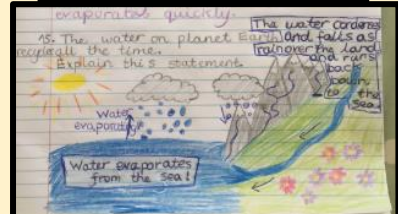 evaporates quickly.
15. The water on planet Earth
recycled all the time.
Explain this statement.
The water condenses
and falls as
rain over the land
and runs
back
down
to the
sea.
Water
evaporating
Water evaporates
from the sea!